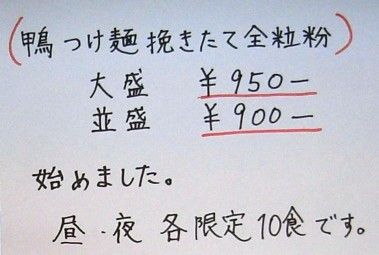 (鴨つけ麺挽きたて全粒粉)
大盛 ¥950ー
並盛 ¥900ー
始めました。
昼・夜 各限定10食です。